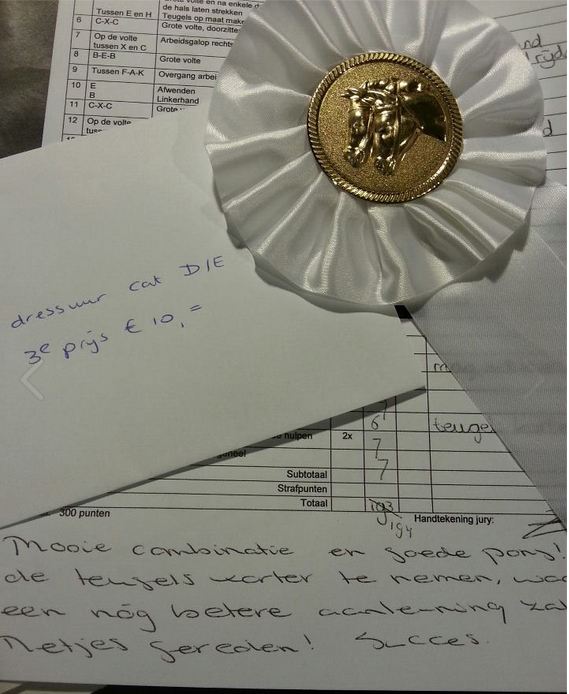 Tussen E en H
de hals laten strekken
Teugels op maat make
6 C-X-C Grote volte, doorzitte
7 Op de volte tussen X en C Arbeidsgalop rechts
8 B-E-B Grote volte
9 Tussen F-A-K Overgang arbei
10 E Afwenden
B Linkerhand
11 C-X-C Grote
12 Op de volte
tuss
dressuur cat D/E
3e prijs € 10,=
6
teuge
hulpen 2x 7
7
Subtotaal
Strafpunten
Totaal 193
194
300 punten
Handtekening jury:
Mooie combinatie en goede pony!
de teugels korter te nemen, waa
een nóg betere aanleuning zal
Netjes gereden! Succes.